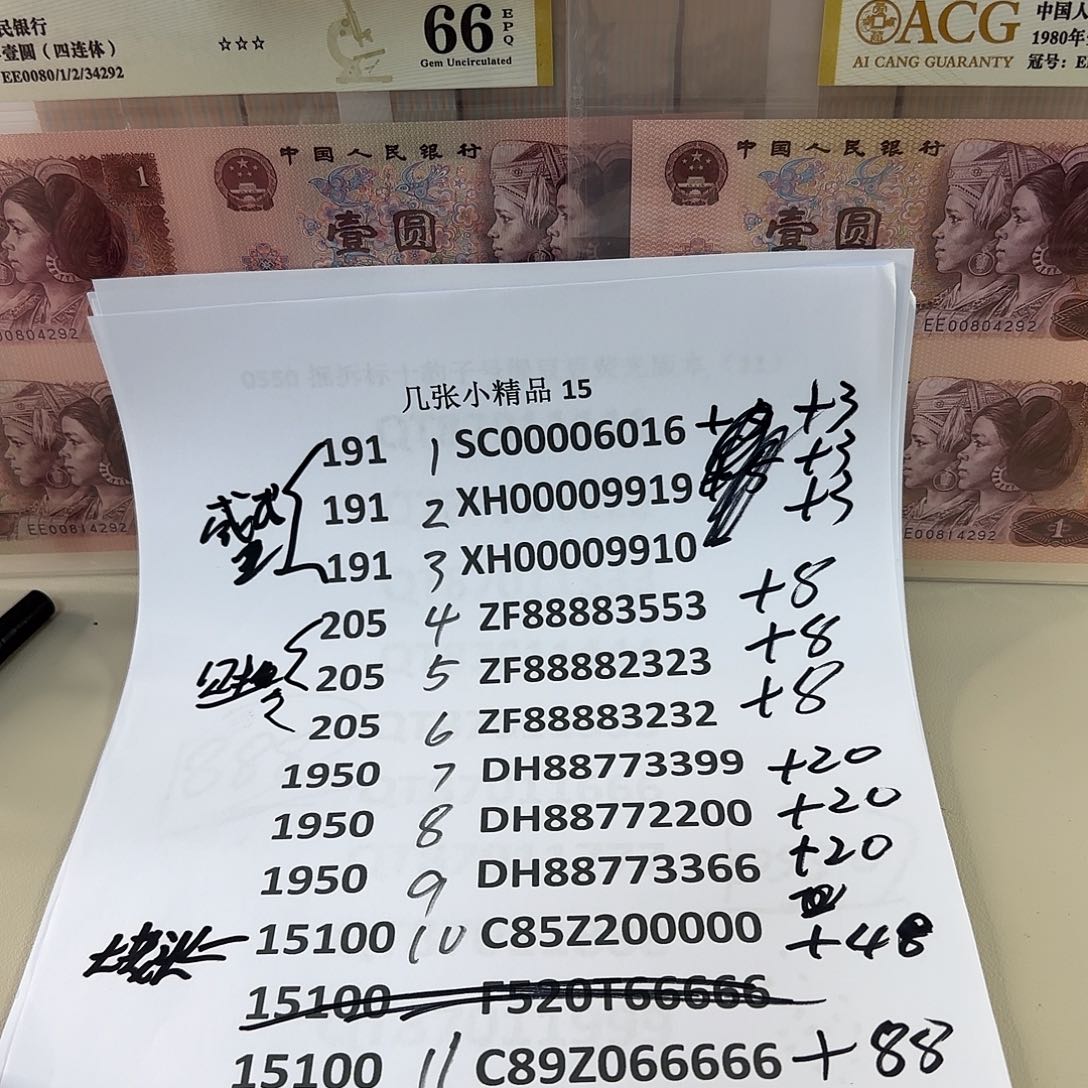 民银行
壹圆（四连体）
EE0080/1/2/34292
☆☆☆
66 EPQ
Gem Uncirculated
ACG
AI CANG GUARANTY
中国人
1980年
冠号：E
1
中国人民银行
壹圆
中国人民银行
壹圆
00804292
EE00804292
EE00814292
E00814292
1
几张小精品 15
191 1 SC00006016 + +3
191 2 XH00009919 +3
191 3 XH00009910 +3
205 4 ZF88883553 +8
205 5 ZF88882323 +8
205 6 ZF88883232 +8
1950 7 DH88773399 +20
1950 8 DH88772200 +20
1950 9 DH88773366 +20
15100 10 C85Z200000 +48
15100 F520T66666
15100 11 C89Z066666 +88